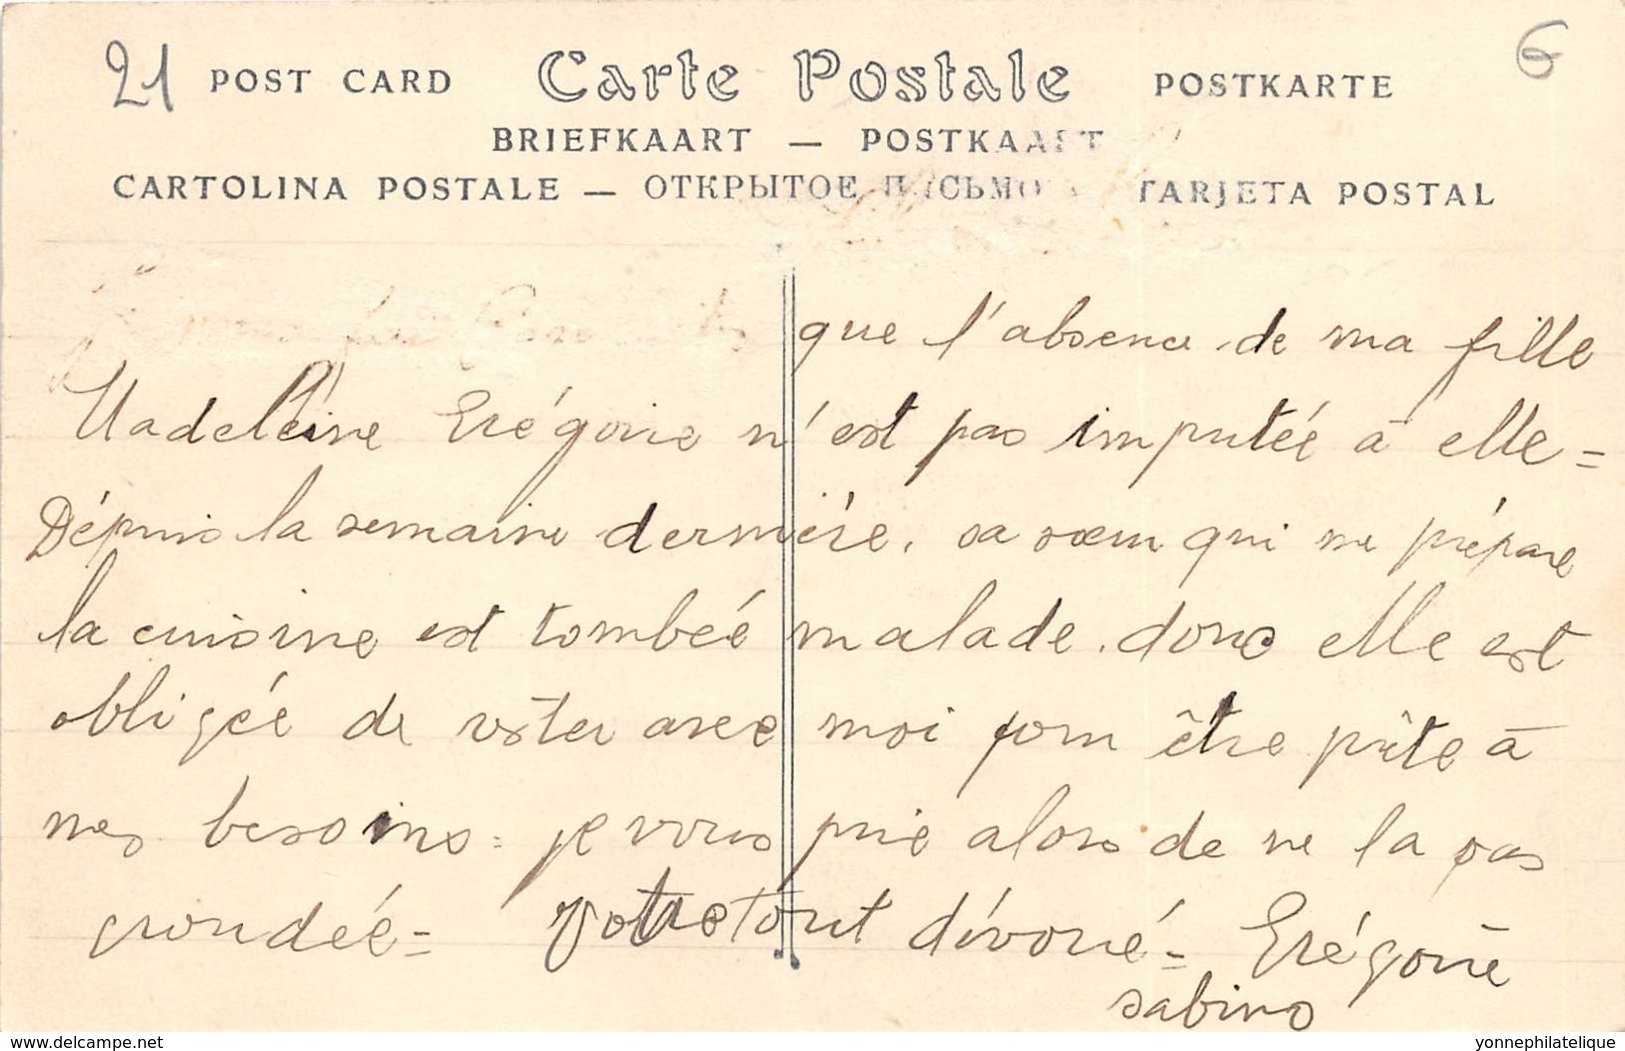 21 POST CARD Carte Postale POSTKARTE 6
BRIEFKAART — POSTKAART
CARTOLINA POSTALE — ОТКРЫТОЕ ПИСЬМО TARJETA POSTAL
que l'absence de ma fille
Madeleine Grégoire n'est pas imputée à elle =
Dépuis la semaine dernière, sa sœur qui me prépare
la cuisine est tombée malade. donc elle est
obligée de rester avec moi pour être prête à
mes besoins = je vous prie alors de ne la pas
grondée = Votre tout dévoué = Grégoire
sabino
www.delcampe.net
yonnephilatelique